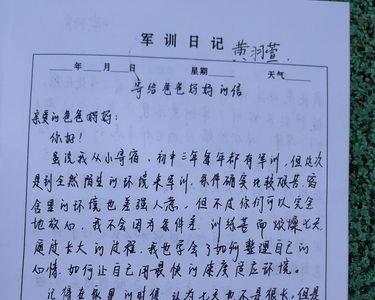 军训日记 黄羽萱
年 月 日 星期 天气
写给爸爸妈妈的信
亲爱的爸爸妈妈:
你好!
虽说我从小寄宿,初中三年每年都有军训,但这次
是到全然陌生的环境来军训,条件确实比较艰苦,宿
舍里的环境也差强人意,但不过你们可以完全
地放心,我不会因为条件差,训练苦而放燥七天,
成长大的过程,我也学会了如何整理自己的
心情,如何让自己用最快的速度适应环境。
记得在家里的时候,认为七天也不是很长,但是